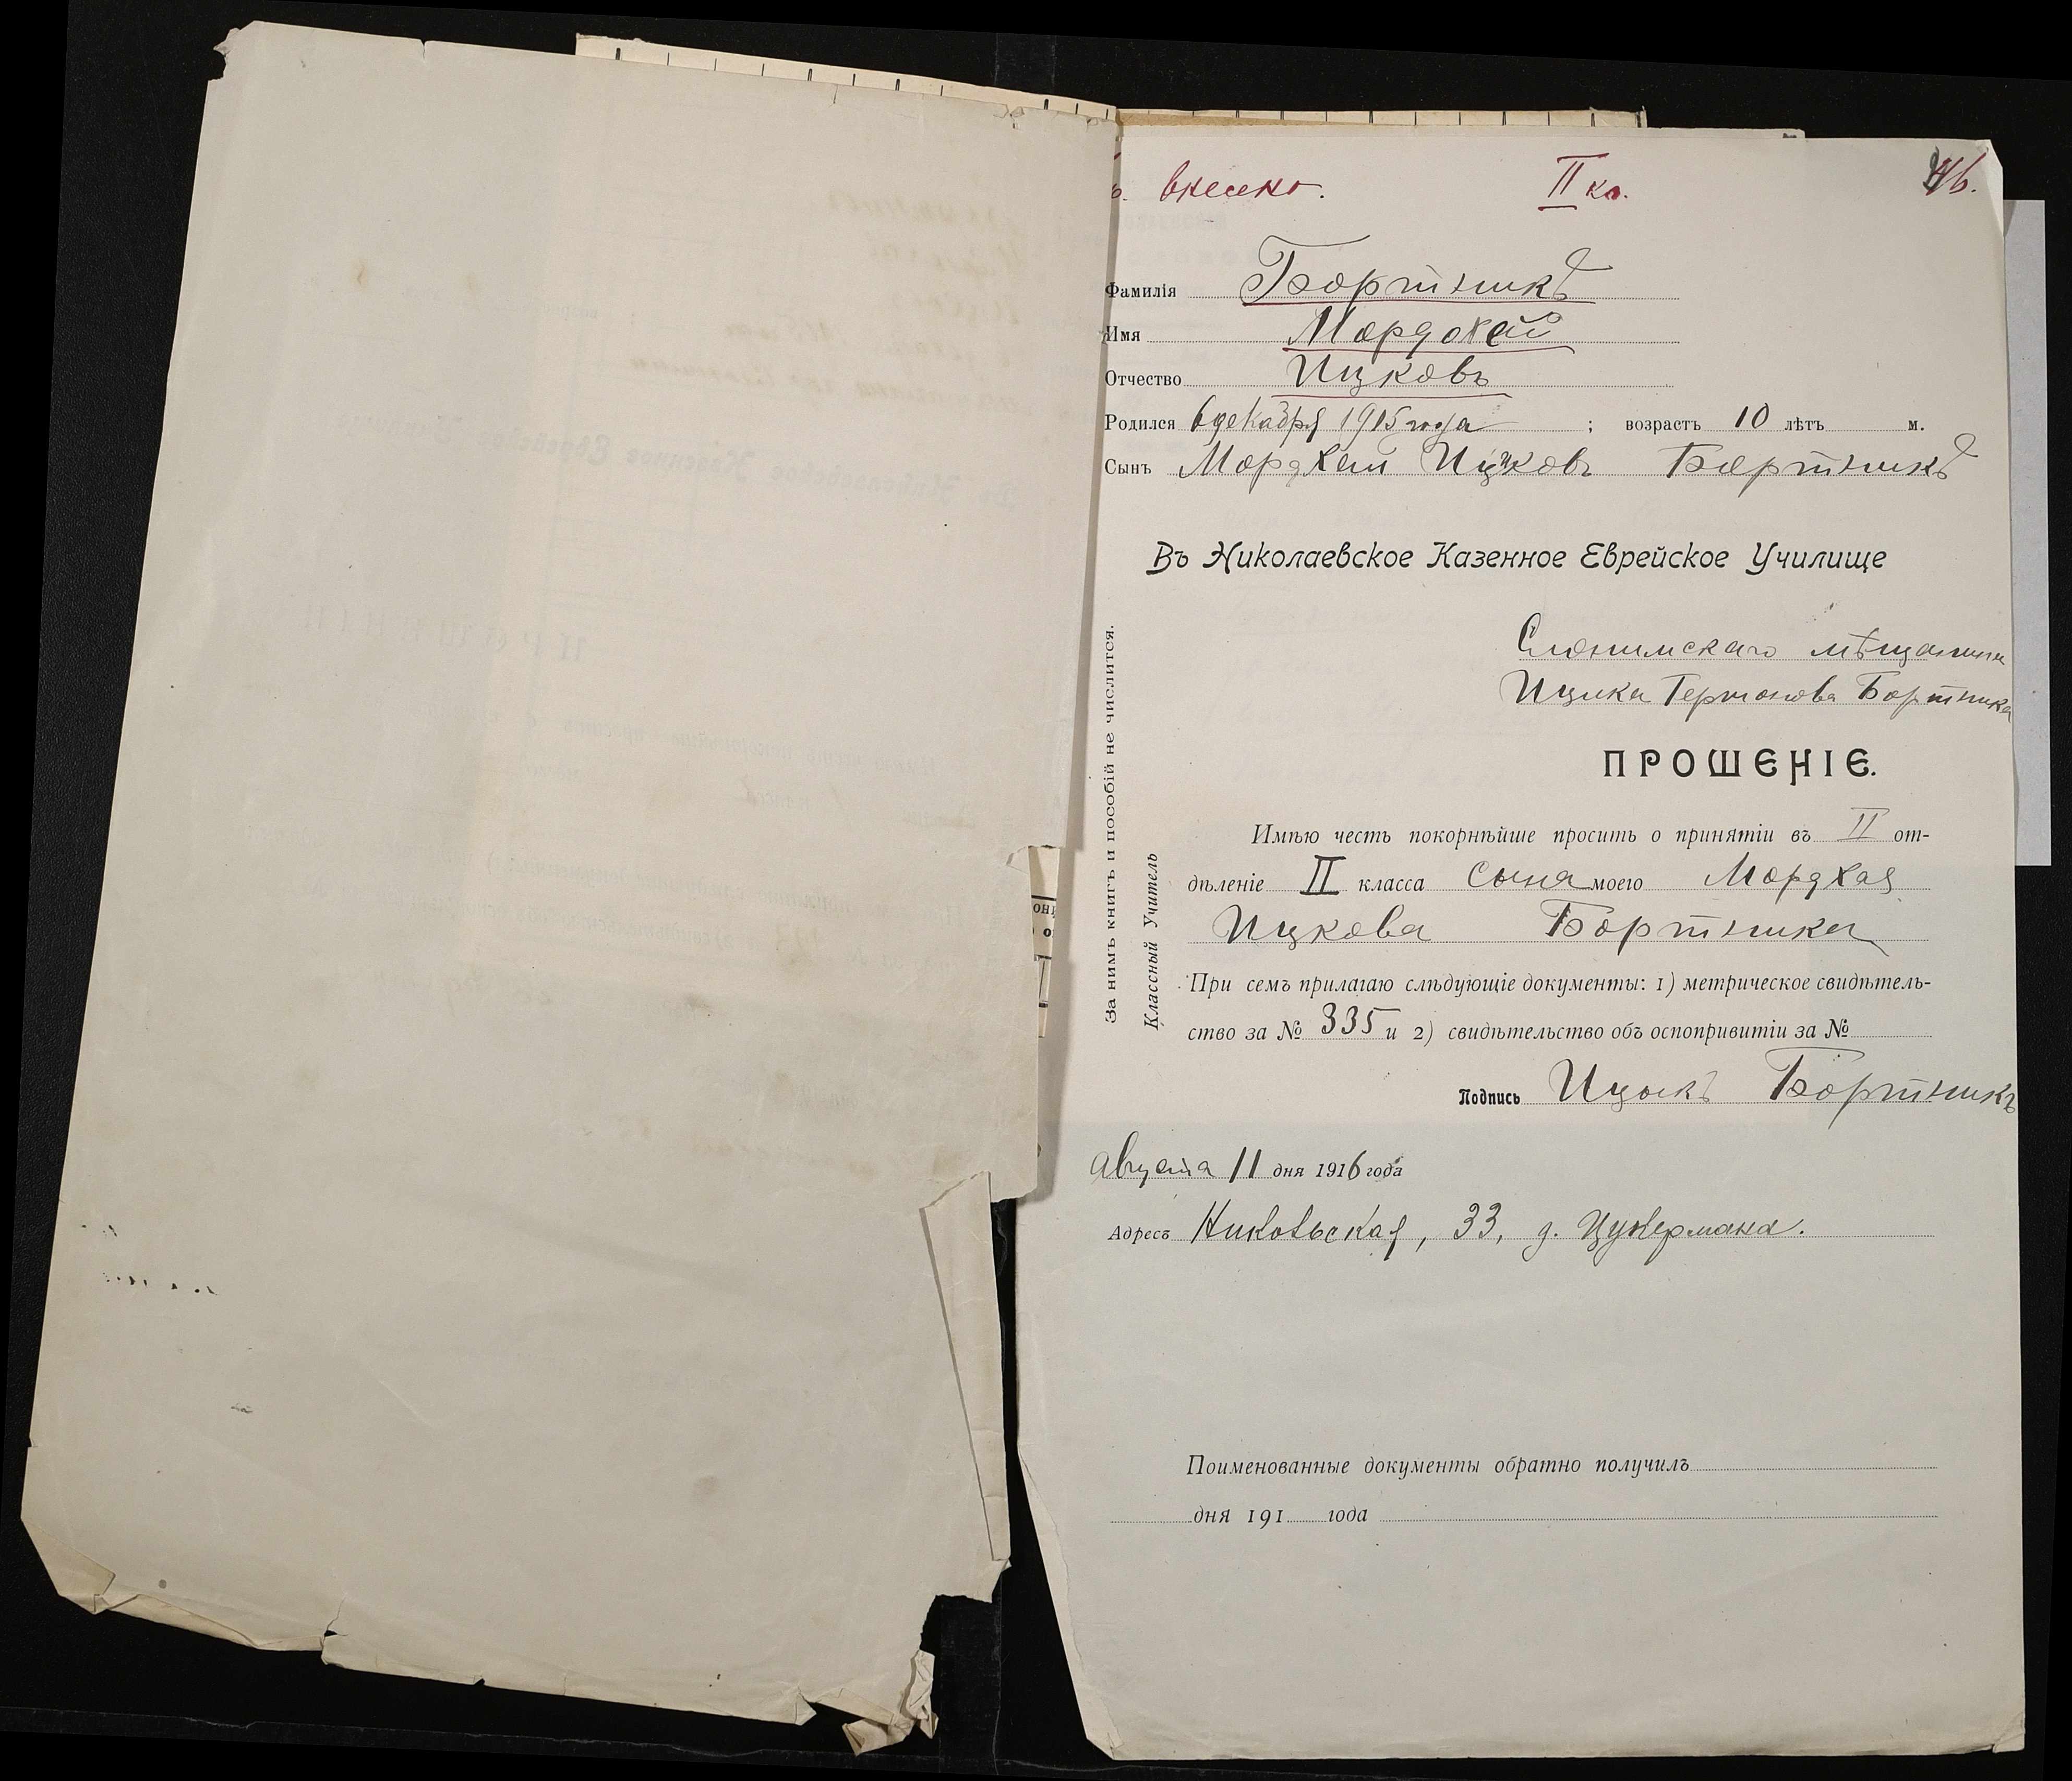 внесено. II кл. 46.
Фамилія Бортникъ
Имя Мордохей
Отчество Ицковъ
Родился 6 декабря 1915 года ; возрастъ 10 лѣтъ м.
Сынъ Мордхей Ицковъ Бортникъ
Въ Николаевское Казенное Еврейское Училище
Слонимскаго мѣщанина
Ицика Германова Бортника
ПРОШЕНІЕ.
Имѣю честь покорнѣйше просить о принятіи въ II от-
дѣленіе II класса сына моего Мордхая
Ицкова Бортника
При семъ прилагаю слѣдующіе документы: 1) метрическое свидѣтель-
ство за № 335 и 2) свидѣтельство объ оспопривитіи за №
Подпись Ицыкъ Бортникъ
Августа 11 дня 1916 года
Адресъ Никольская, 33, д. Цукермана.
Поименованные документы обратно получилъ
дня 191 года
За нимъ книгъ и пособій не числится.
Классный Учитель